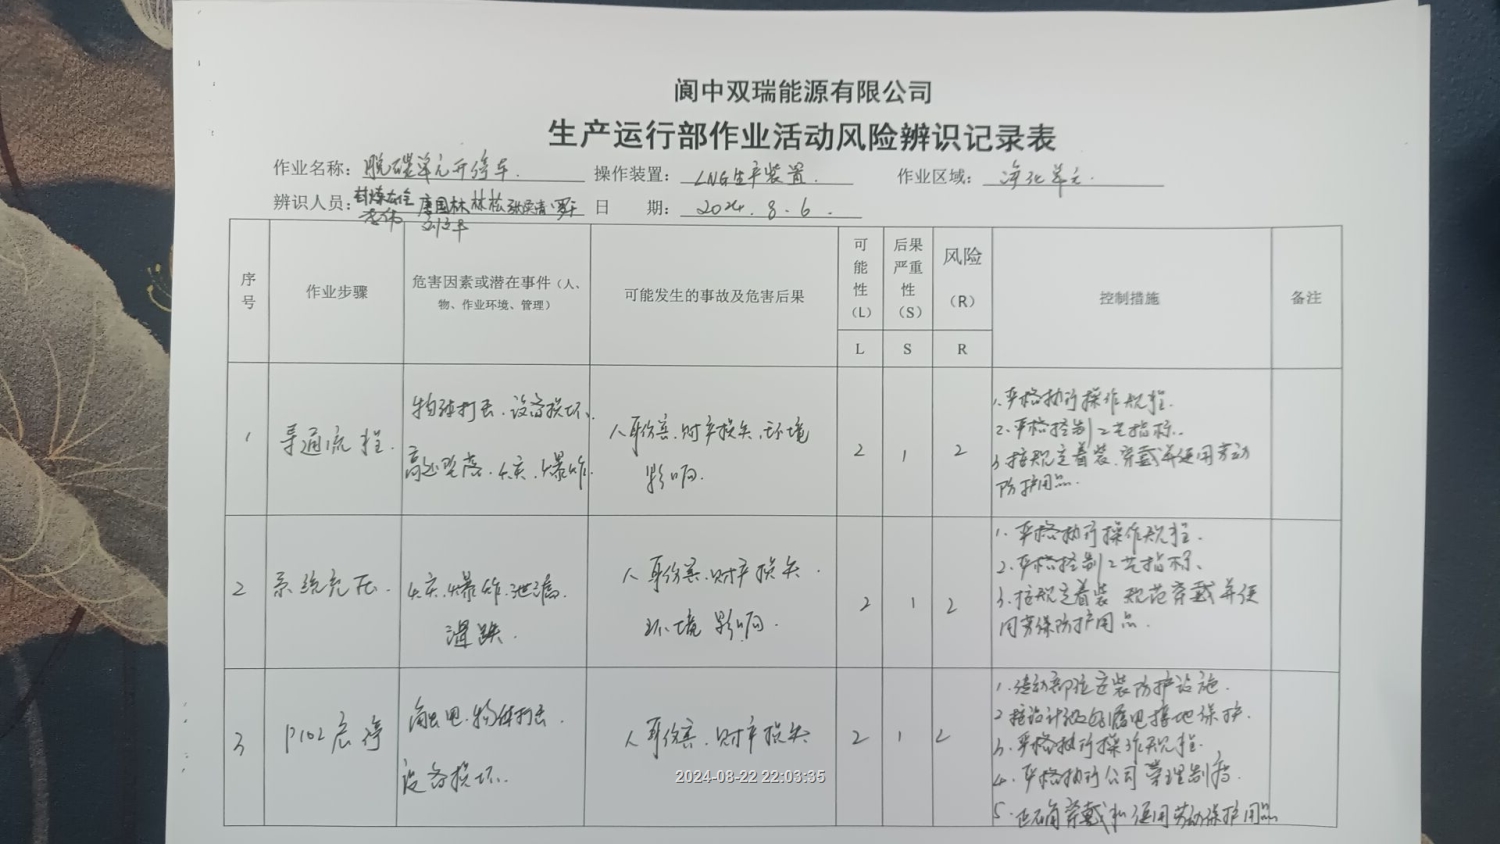 阆中双瑞能源有限公司
生产运行部作业活动风险辨识记录表
作业名称：脱碳单元开停车. 操作装置：LNG生产装置. 作业区域：净化单元.
辨识人员： 唐国林 林松 日 期：2024.8.6.
序号 作业步骤 危害因素或潜在事件（人、物、作业环境、管理） 可能发生的事故及危害后果 可能性（L） 后果严重性（S） 风险（R） 控制措施 备注
L S R
1 导通流程. 物体打击.设备损坏、
高处坠落.火灾.爆炸.
人身伤害.财产损失.环境
影响.
2 1 2
1.严格执行操作规程.
2.严格控制工艺指标.
3.按规定着装.穿戴并使用劳动
防护用品.
2 系统充压. 火灾.爆炸.泄漏.
滑跌.
人身伤害.财产损失.
环境影响.
2 1 2
1.严格执行操作规程.
2.严格控制工艺指标、
3.按规定着装 规范穿戴并使
用劳保防护用品.
3 P102启停 触电.物体打击.
设备损坏.
人身伤害.财产损失
2 1 2
1.传动部位安装防护设施.
2.按设计做好漏电接地保护.
3.严格执行操作规程.
4.严格执行公司管理制度.
5.正确穿戴和使用劳动保护用品.
2024-08-22 22:03:35